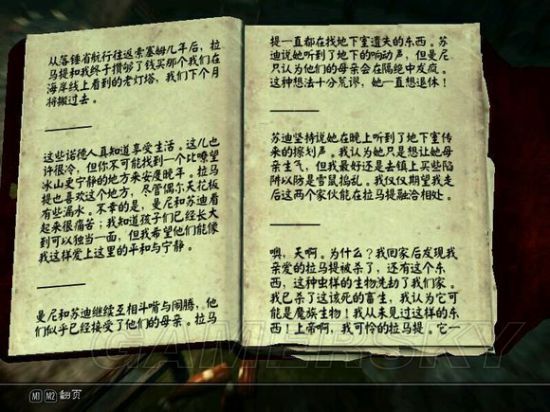 从落锤省航行往返索塞姆几年后，拉
马提和我终于攒够了钱买那个我们在
海岸线上看到的老灯塔，我们下个月
将搬过去。
这些诺德人真知道享受生活。这儿也
许很冷，但你不可能找到一个比嘹望
冰山更宁静的地方来安度晚年。拉马
提也喜欢这个地方，尽管偶尔天花板
有些漏水。不幸的是，曼尼和苏迪看
起来很痛苦；我知道孩子们已经长大
到可以独当一面，但我希望他们能像
我这样爱上这里的平和与宁静。
曼尼和苏迪继续互相斗嘴与闹腾，他
们似乎已经接受了他们的母亲。拉马
提一直都在找地下室遗失的东西。苏
迪说她听到了下地的响动声，但曼尼
只认为他们的母亲会在隔绝中发疯。
这种想法十分荒谬，她一直想退休！
苏迪坚持说她在晚上听到了地下室传
来的擦划声。我认为她只是想让她母
亲生气，但我最好还是去镇上买些陷
阱以防是雪鼠捣乱。我仅仅期望我走
后这两个家伙能在拉马提融洽相处。
噢，天啊。为什么？我回家后发现我
亲爱的拉马提被杀了，还有这个东
西，这种虫样的生物洗劫了我们家。
我已杀了这该死的畜生，我认为它可
能是魔族生物！我从未见过这样的东
西！上帝啊，我可怜的拉马提。它一
GAMERSKY
M1 M2 翻页